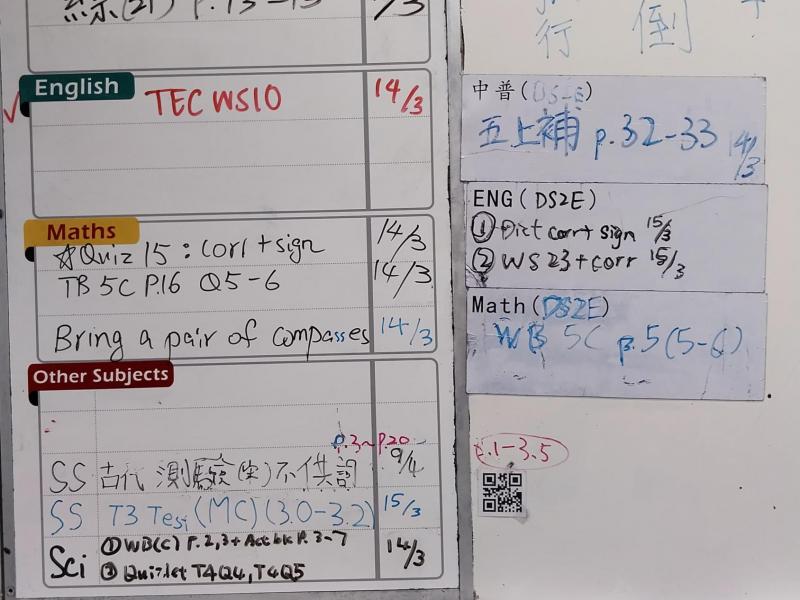 綜(21) p.13-15
/3
English
TEC WS10 14/3
Maths
☆Quiz 15 : corr + sign 14/3
TB 5C P.16 Q5-6 14/3
Bring a pair of compasses 14/3
Other Subjects
p.3~p.20
SS 古代 測驗 不供詞 9/4
SS T3 Test (MC) (3.0-3.2) 15/3
Sci ① WB(C) P.2,3 + Act bk P. 3-7 14/3
② Quizlet T4Q4, T4Q5
行 倒
中普(DS2E)
五上補 p.32-33 14/3
ENG(DS2E)
① Dict corr + sign 15/3
② WS 23 + corr 15/3
Math(DS2E)
WB 5C p.5 (5-6)
1-3.5